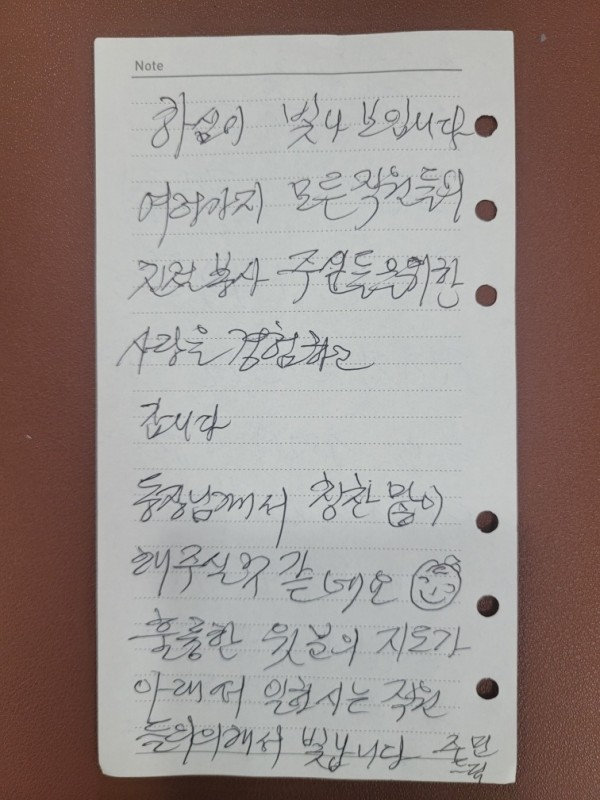 Note
하심이 빛나 보입니다
여러가지 모든 직원들의
친절 봉사 주민들을 위한
사랑을 경험하고
갑니다
동장님께서 칭찬 많이
해주실 것 같네요
훌륭한 윗분의 지도가
아래서 일하시는 직원
빛납니다 주민
드림